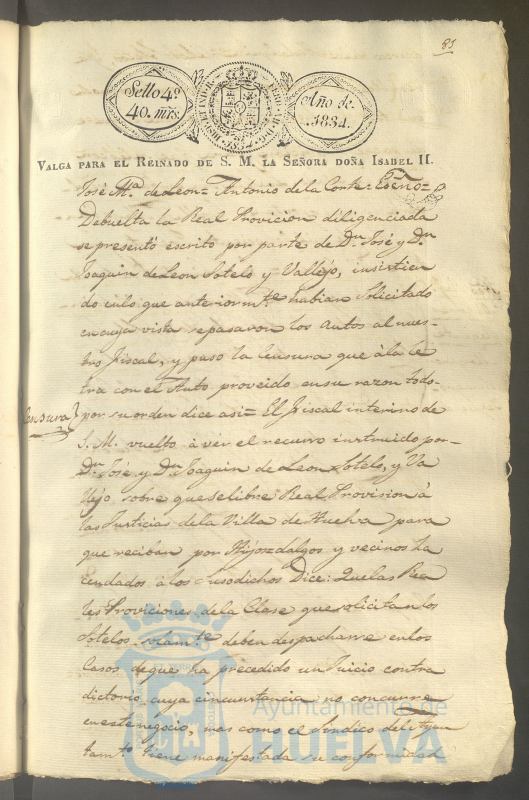 85
Sello 4º
40. mrs.
Año de
1834.
VALGA PARA EL REINADO DE S. M. LA SEÑORA DOÑA ISABEL II.
José Mª de Leon= Antonio de la Corte= Esno=
Debuelta la Real Provicion diligenciada
se presentó escrito por parte de Dn José y Dn
Joaquin de Leon Sotelo y Vallejo, insistien
do enlo que anteriormte habian Solicitado
en cuya vista sepasaron los Autos al nues-
tro Fiscal, y puso la Censura que àla le
tra con el Auto proveido ensu razon todo-
Censura por su orden dice asi= El Fiscal interino de
S. M. vuelto à ver el recurso instruido por-
Dn José y Dn Joaquin de Leon Sotelo, y Va
llejo sobre queselibre Real Provision à
las Justicias dela Villa de Huelva para
que reciban por Hijosdalgos y vecinos ha
cendados àlos susodichos Dice: Quelas Rea
les Proviciones dela Clase que solicitan los
Sotelos solamte deben despacharse enlos
Casos deque ha precedido un Juicio contra
dictorio cuya circunstancia no concurre
eneste negocio, mas como el Sindico del Ayun
tamto tiene manifestada su conformidad
Ayuntamiento de
HUELVA